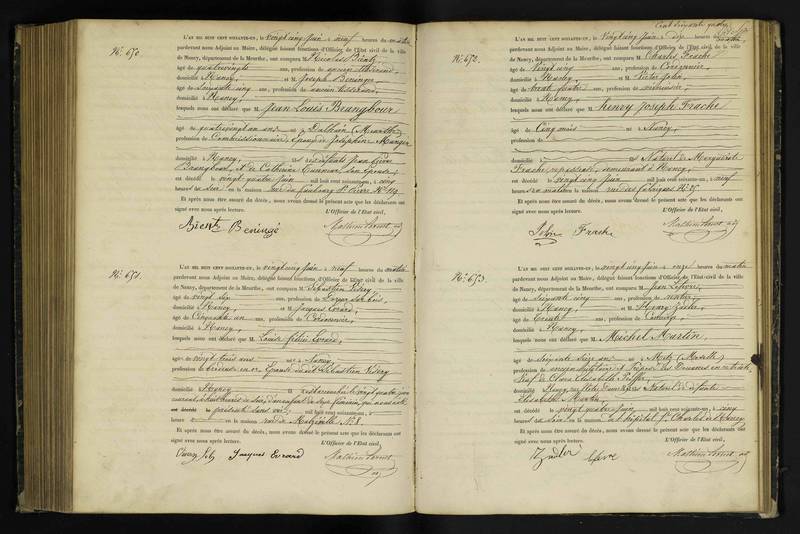 N° 650.
L'AN MIL HUIT CENT SOIXANTE-UN, le vingt cinq Juin à neuf heures du matin
pardevant nous Adjoint au Maire, délégué faisant fonctions d'Officier de l'Etat civil de la ville
de Nancy, département de la Meurthe, ont comparu M. Nicolas
âgé de quatre vingts ans, profession de ancien tisserand,
domicilié à Nancy, et M. Joseph Beninger
âgé de soixante cinq ans, profession de ancien tisserand
domicilié à Nancy,
lesquels nous ont déclaré que M. Jean Louis Beangbour
âgé de quatre vingt un ans né à Dalhain (Meurthe)
profession de Commissionnaire, Epoux de Joséphine Mangin
domicilié à Nancy, et des défunts Jean
et de Catherine son épouse,
est décédé le vingt quatre Juin mil huit cent soixante-un, à cinq
heures du soir en la maison rue du faubourg St Pierre N° 119.
Et après nous être assuré du décès, nous avons dressé le présent acte que les déclarants ont
signé avec nous après lecture. L'Officier de l'Etat civil,
N° 651.
L'AN MIL HUIT CENT SOIXANTE-UN, le vingt cinq Juin à neuf heures du matin
pardevant nous Adjoint au Maire, délégué faisant fonctions d'Officier de l'Etat civil de la ville
de Nancy, département de la Meurthe, ont comparu M. Sébastien
âgé de vingt six ans, profession de
domicilié à Nancy, et M. Jacques Evrard,
âgé de Cinquante un ans, profession de Cordonnier,
domicilié à Nancy,
lesquels nous ont déclaré que M. Louise Evrard,
âgé de vingt trois ans né à Nancy,
profession de brodeuse en or Epouse dudit Sébastien
domicilié à Nancy est accouchée le vingt quatre Juin
d'un enfant du sexe féminin, qui nous a été
présenté sans vie, mil huit cent soixante-un, à
heures en la maison rue de Malzéville N° 8.
Et après nous être assuré du décès, nous avons dressé le présent acte que les déclarants ont
signé avec nous après lecture. L'Officier de l'Etat civil,
Jacques Evrard
Cent soixante quatre
N° 652.
L'AN MIL HUIT CENT SOIXANTE-UN, le vingt cinq Juin à dix heures du matin
pardevant nous Adjoint au Maire, délégué faisant fonctions d'Officier de l'Etat civil de la ville
de Nancy, département de la Meurthe, ont comparu M. Charles Frache
âgé de Vingt cinq ans, profession de Cordonnier,
domicilié à Nancy, et M. Victor John,
âgé de trente quatre ans, profession de
domicilié à Nancy,
lesquels nous ont déclaré que M. henry Joseph Frache
âgé de Cinq mois né à Nancy,
profession de
domicilié à et Naturel de Marguerite
Frache, repasseuse, demeurant à Nancy,
est décédé le vingt cinq Juin mil huit cent soixante-un, à neuf
heures du matin en la maison rue des fabriques N° 25
Et après nous être assuré du décès, nous avons dressé le présent acte que les déclarants ont
signé avec nous après lecture. L'Officier de l'Etat civil,
John Frache
N° 653.
L'AN MIL HUIT CENT SOIXANTE-UN, le vingt cinq Juin à onze heures du matin
pardevant nous Adjoint au Maire, délégué faisant fonctions d'Officier de l'Etat civil de la ville
de Nancy, département de la Meurthe, ont comparu M. Jean Lefèvre,
âgé de soixante cinq ans, profession de rentier,
domicilié à Nancy, et M. Henry
âgé de Trente ans, profession de
domicilié à Nancy,
lesquels nous ont déclaré que M. Michel Martin,
âgé de soixante dix ans né à Metz (Moselle)
profession de ancien militaire et Préposé des Douanes en retraite
Veuf de Claire Elisabeth
domicilié à Nancy, Naturel de défunte
Elisabeth Martin
est décédé le vingt quatre Juin mil huit cent soixante-un, à cinq
heures du soir en la maison à l'hôpital St Charles à Nancy
Et après nous être assuré du décès, nous avons dressé le présent acte que les déclarants ont
signé avec nous après lecture. L'Officier de l'Etat civil,